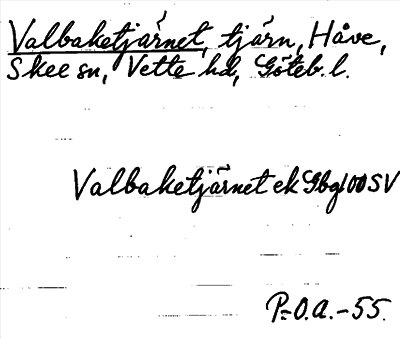 Valbaketjärnet, tjärn, Håve,
Skee sn, Vette hd, Göteb. l.
Valbaketjärnet ek Gbg 100 SV
P.-O.A. -55.